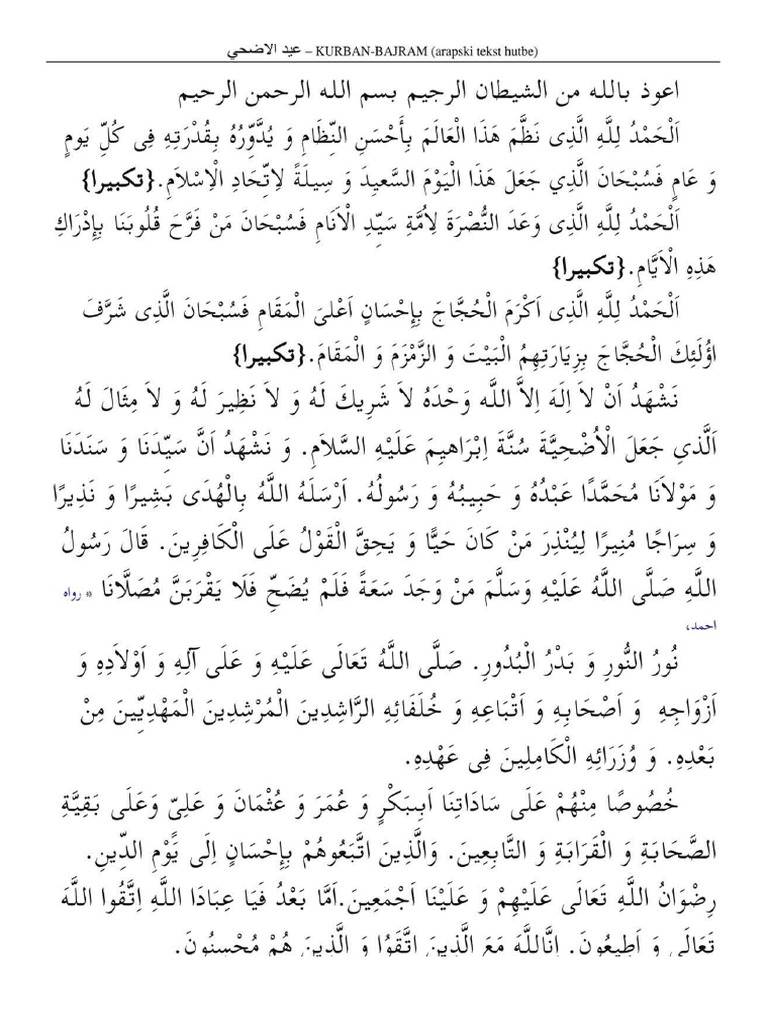 عيد الاضحي – KURBAN-BAJRAM (arapski tekst hutbe)
اعوذ بالله من الشيطان الرجيم بسم الله الرحمن الرحيم
اَلْحَمْدُ لِلَّهِ الَّذِى نَظَّمَ هَذَا الْعَالَمَ بِأَحْسَنِ النِّظَامِ وَ يُدَّوِّرُهُ بِقُدْرَتِهِ فِى كُلِّ يَومٍ
وَ عَامٍ فَسُبْحَانَ الَّذِي جَعَلَ هَذَا الْيَوْمَ السَّعِيدَ وَ سِيلَةً لاِتِّحَادِ الْاِسْلاَمِ.{تكبيرا}
اَلْحَمْدُ لِلَّهِ الَّذِى وَعَدَ النُّصْرَةَ لِاُمَّةِ سَيِّدِ الْاَنَامِ فَسُبْحَانَ مَنْ فَرَّحَ قُلُوبَنَا بِإِدْرَاكِ
هَذِهِ الْاَيَّامِ.{تكبيرا}
اَلْحَمْدُ لِلَّهِ الَّذِى اَكْرَمَ الْحُجَّاجَ بِإِحْسَانٍ اَعْلىَ الْمَقَامِ فَسُبْحَانَ الَّذِى شَرَّفَ
اؤُلَئِكَ الْحُجَّاجَ بِزِيَارَتِهِمُ الْبَيْتَ وَ الزَّمْزَمَ وَ الْمَقَامَ.{تكبيرا}
نَشْهَدُ اَنْ لاَ اِلَهَ اِلاَّ اللَّه وَحْدَهُ لاَ شَرِيكَ لَهُ وَ لاَ نَظِيرَ لَهُ وَ لاَ مِثَالَ لَهُ
اَلَّذيِ جَعَلَ الْاُضْحِيَّةَ سُنَّةَ اِبْرَاهِيمَ عَلَيْهِ السَّلاَمِ. وَ نَشْهَدُ اَنَّ سَيِّدَنَا وَ سَنَدَنَا
وَ مَوْلاَنَا مُحَمَّدًا عَبْدُهُ وَ حَبِيبُهُ وَ رَسُولُهُ. اَرْسَلَهُ اللَّهُ بِالْهُدَى بَشِيرًا وَ نَذِيرًا
وَ سِرَاجًا مُنِيرًا لِيُنْذِرَ مَنْ كَانَ حَيًّا وَ يَحِقَّ الْقَوْلُ عَلَى الْكَافِرِينَ. قَالَ رَسُولُ
اللَّهِ صَلَّى اللَّهُ عَلَيْهِ وَسَلَّمَ مَنْ وَجَدَ سَعَةً فَلَمْ يُضَحِّ فَلَا يَقْرَبَنَّ مُصَلَّانَا * رواه
احمد،
نُورُ النُّورِ وَ بَدْرُ الْبُدُورِ. صَلَّى اللَّهُ تَعَالَى عَلَيْهِ وَ عَلَى آلِهِ وَ اَوْلاَدِهِ وَ
اَزْوَاجِهِ وَ اَصْحَابِهِ وَ اَتْبَاعِهِ وَ خُلَفَائِهِ الرَّاشِدِينَ الْمُرْشِدِينَ الْمَهْدِيِّينَ مِنْ
بَعْدِهِ. وَ وُزَرَائِهِ الْكَامِلِينَ فِى عَهْدِهِ.
خُصُوصًا مِنْهُمْ عَلَى سَادَاتِنَا اَبِىبَكْرٍ وَ عُمَرَ وَ عُثْمَانَ وَ عَلِىّ وَعَلَى بَقِيَّةِ
الصَّحَابَةِ وَ الْقَرَابَةِ وَ التَّابِعِينَ. وَالَّذِينَ اتَّبَعُوهُمْ بِإِحْسَانٍ اِلَى يَوْمِ الدِّينِ.
رِضْوَانُ اللَّهِ تَعَالَى عَلَيْهِمْ وَ عَلَيْنَا اَجْمَعِينَ.اَمَّا بَعْدُ فَيَا عِبَادَا اللَّهِ اِتَّقُوا اللَّهَ
تَعَالَى وَ اَطِيعُونَ. اِنَّاللَّهَ مَعَ الَّذِينَ اتَّقَوْا وَ الَّذِينَ هُمْ مُحْسِنُونَ.